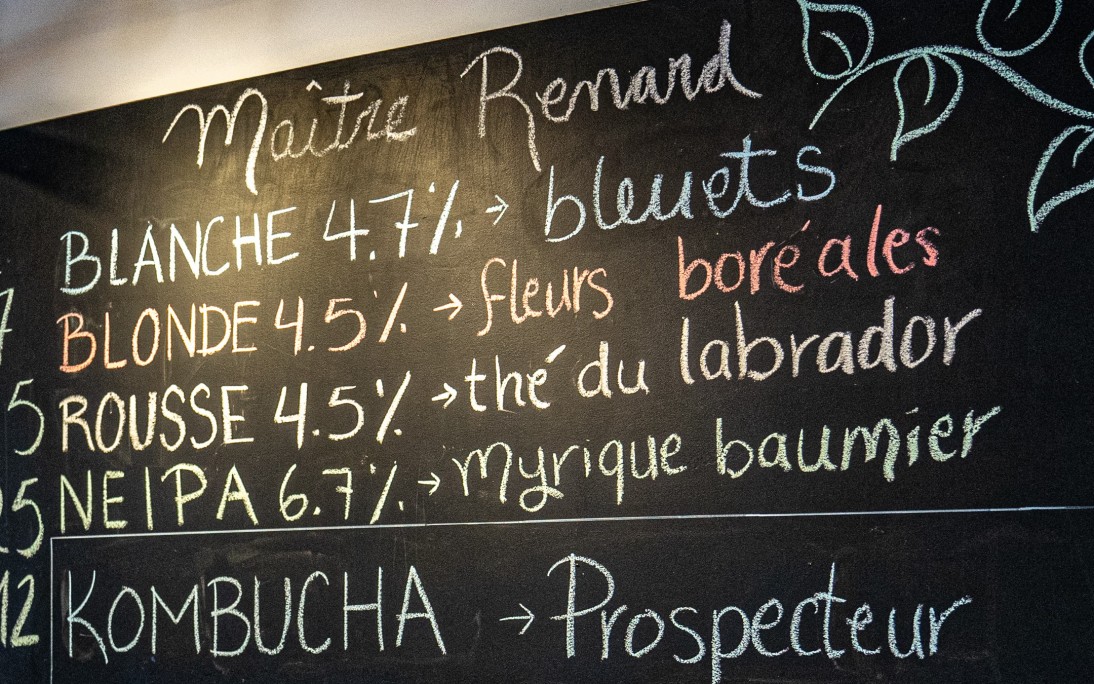 Maître Renard
BLANCHE 4.7% → bleuets
BLONDE 4.5% → fleurs boréales
ROUSSE 4.5% → thé du labrador
NEIPA 6.7% → myrique baumier
KOMBUCHA → Prospecteur
7
5
25
12